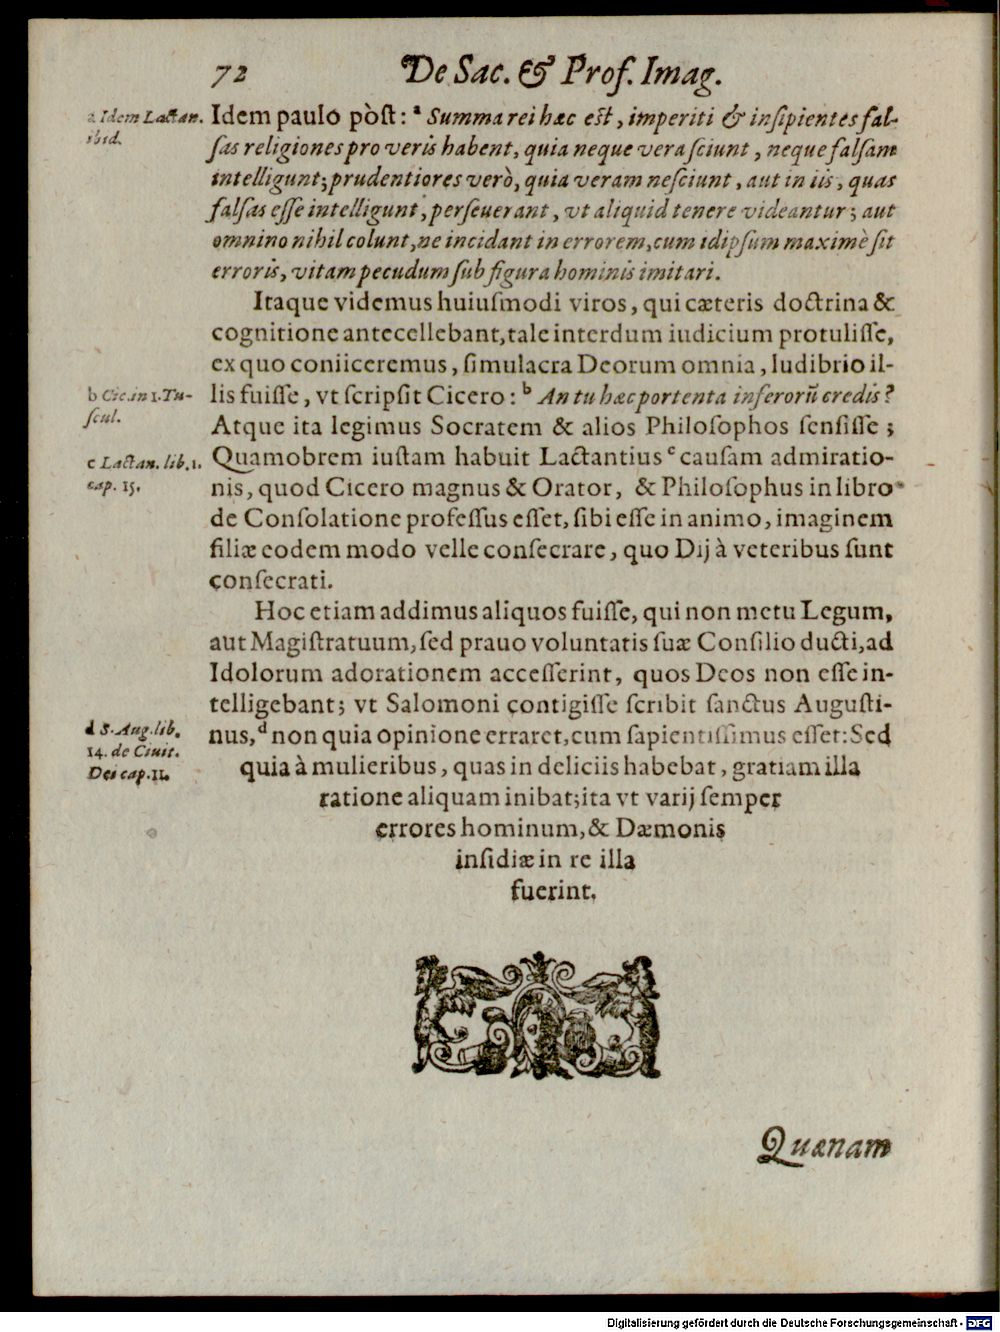 72 De Sac. & Prof. Imag.
a Idem Lactan.
ibid.
Idem paulò pòst: ᵃ Summa rei hæc est, imperiti & inſipientes fal-
ſas religiones pro veris habent, quia neque vera ſciunt, neque falſam
intelligunt; prudentiores verò, quia veram neſciunt, aut in iis, quas
falſas eſſe intelligunt, perſeuerant, vt aliquid tenere videantur; aut
omnino nihil colunt, ne incidant in errorem, cum idipſum maximè ſit
erroris, vitam pecudum ſub figura hominis imitari.
Itaque videmus huiuſmodi viros, qui cæteris doctrina &
cognitione antecellebant, tale interdum iudicium protuliſſe,
ex quo coniiceremus, ſimulacra Deorum omnia, ludibrio il-
b Cic. in 1. Tu-
ſcul.
lis fuiſſe, vt ſcripſit Cicero: ᵇ An tu hæc portenta inferorū credis?
Atque ita legimus Socratem & alios Philoſophos ſenſiſſe;
c Lactan. lib. 1.
cap. 15.
Quamobrem iuſtam habuit Lactantius ᶜ cauſam admiratio-
nis, quod Cicero magnus & Orator, & Philoſophus in libro
de Conſolatione profeſſus eſſet, ſibi eſſe in animo, imaginem
filiæ eodem modo velle conſecrare, quo Dij à veteribus ſunt
conſecrati.
Hoc etiam addimus aliquos fuiſſe, qui non metu Legum,
aut Magiſtratuum, ſed prauo voluntatis ſuæ Conſilio ducti, ad
Idolorum adorationem acceſſerint, quos Deos non eſſe in-
telligebant; vt Salomoni contigiſſe ſcribit ſanctus Auguſti-
d S. Aug. lib.
14. de Ciuit.
Dei cap. 11.
nus, ᵈ non quia opinione erraret, cum ſapientiſſimus eſſet: Sed
quia à mulieribus, quas in deliciis habebat, gratiam illa
ratione aliquam inibat; ita vt varij ſemper
errores hominum, & Dæmonis
inſidiæ in re illa
fuerint.
Quænam
Digitalisierung gefördert durch die Deutsche Forschungsgemeinschaft - DFG